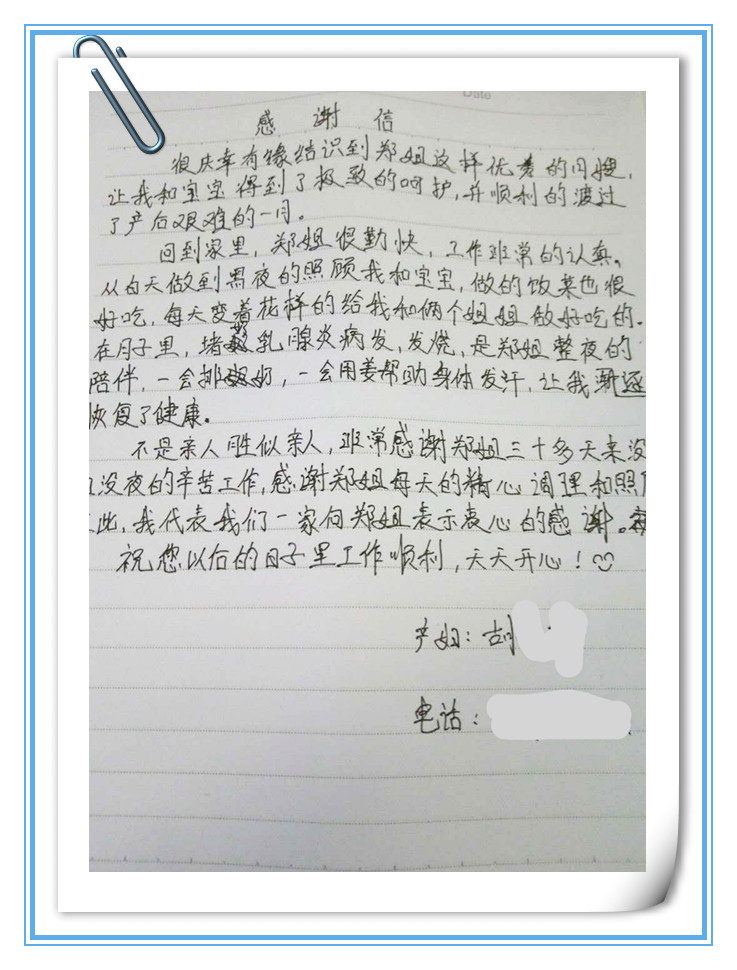 Date
感谢信
很庆幸有缘结识到郑姐这样优秀的月嫂,
让我和宝宝得到了极致的呵护,并顺利的渡过
了产后艰难的一月。
回到家里,郑姐很勤快,工作非常的认真。
从白天做到黑夜的照顾我和宝宝,做的饭菜也很
好吃,每天变着花样的给我和俩个姐姐做好吃的.
在月子里,堵奶乳腺炎病发,发烧,是郑姐整夜的
陪伴,一会排奶,一会用姜帮助身体发汗,让我逐
恢复了健康。
不是亲人胜似亲人,非常感谢郑姐三十多天来没
没夜的辛苦工作,感谢郑姐每天的精心调理和照
此,我代表我们一家向郑姐表示衷心的感谢。
祝您以后的日子里工作顺利,天天开心!
产妇:胡
电话: